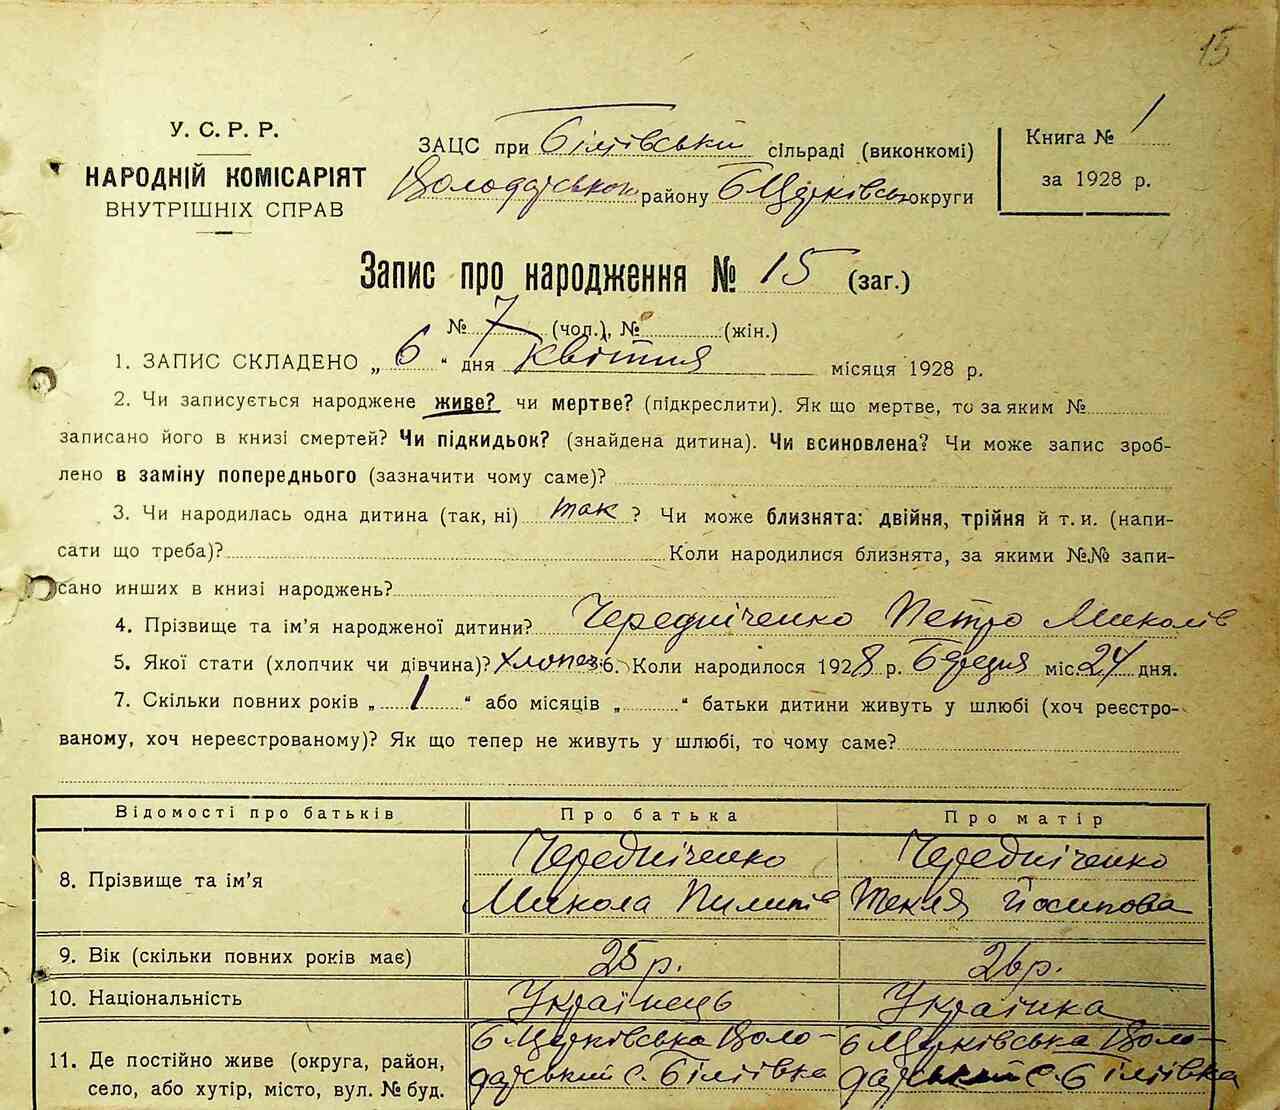 15
У. С. Р. Р.
НАРОДНІЙ КОМІСАРІЯТ
ВНУТРІШНІХ СПРАВ
ЗАЦС при Біліївській сільраді (виконкомі)
Володарською району Б Церківсь округи
Книга № 1
за 1928 р.
Запис про народження № 15 (заг.)
№ 7 (чол.), № (жін.)
1. ЗАПИС СКЛАДЕНО „ 6 “ дня квітня місяця 1928 р.
2. Чи записується народжене живе? чи мертве? (підкреслити). Як що мертве, то за яким №
записано його в книзі смертей? Чи підкидьок? (знайдена дитина). Чи всиновлена? Чи може запис зроб-
лено в заміну попереднього (зазначити чому саме)?
3. Чи народилась одна дитина (так, ні) так ? Чи може близнята: двійня, трійня й т. и. (напи-
сати що треба)? Коли народилися близнята, за якими №№ запи-
сано инших в книзі народжень?
4. Прізвище та ім’я народженої дитини? Чередніченко Петро Миколів
5. Якої стати (хлопчик чи дівчина)? хлопец 6. Коли народилося 1928 р. Березня міс. 24 дня.
7. Скільки повних років „ 1 “ або місяців „ “ батьки дитини живуть у шлюбі (хоч реєстро-
ваному, хоч нереєстрованому)? Як що тепер не живуть у шлюбі, то чому саме?
Відомості про батьків Про батька Про матір
8. Прізвище та ім’я Чередніченко Микола Пилипів Чередніченко Текля Йосипова
9. Вік (скільки повних років має) 25 р. 26 р.
10. Національність Українець Українка
11. Де постійно живе (округа, район, Б Церківська Воло- Б Церківська Воло-
село, або хутір, місто, вул. № буд. дарський с. Біліївка дарський с. Біліївка